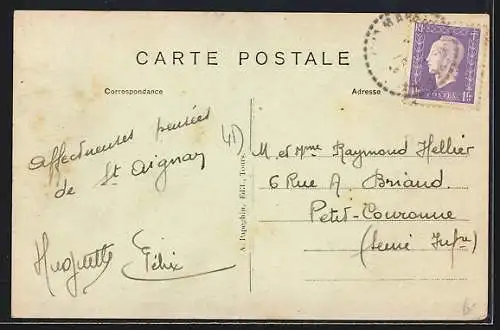 CARTE POSTALE
Correspondance
Adresse
affectueuses pensées
de St Aignan
(41)
Huguette Félix
A. Papeghin, Édit., Tours.
M. et Mme Raymond Hellier
6 Rue A. Briand.
Petit-Couronne
(Seine Infre)